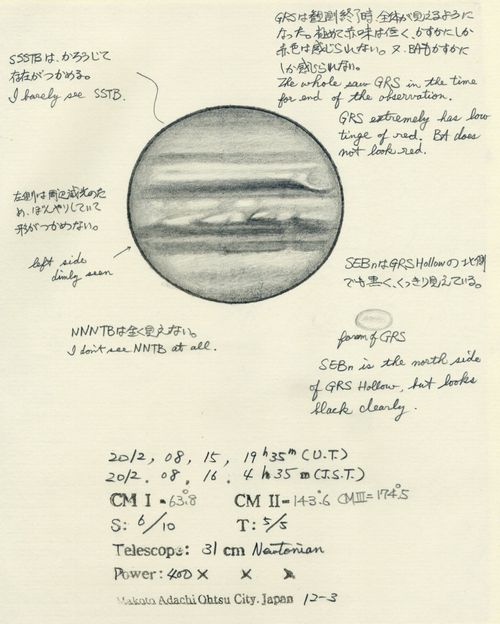 GRSは観測終了時、全体が見えるように
なった。極めて赤味は低く、かすかにしか
赤色は感じられない。又、BAもかすかに
しか感じられない。
The whole saw GRS in the time
for end of the observation.
GRS extremely has low
tinge of red. BA does
not look red.
SSSTBは、かろうじて
存在がつかめる。
I barely see SSTB.
左側は周辺減光のた
め、ぼんやりしていて
形がつかめない。
left side
dimly seen
SEBnはGRS Hollowの北側
でも黒く、くっきり見えている。
form of GRS
SEBn is the north side
of GRS Hollow, but looks
black clearly.
NNNTBは全く見えない。
I don't see NNTB at all.
2012, 08, 15, 19h35m (U.T.)
2012. 08. 16. 4h35m (J.S.T.)
CM I = 63.8° CM II = 143.6° CMIII = 174.5°
S: 6/10 T: 5/5
Telescope: 31 cm Newtonian
Power: 400× × ×
Makoto Adachi Ohtsu City. Japan 12-3